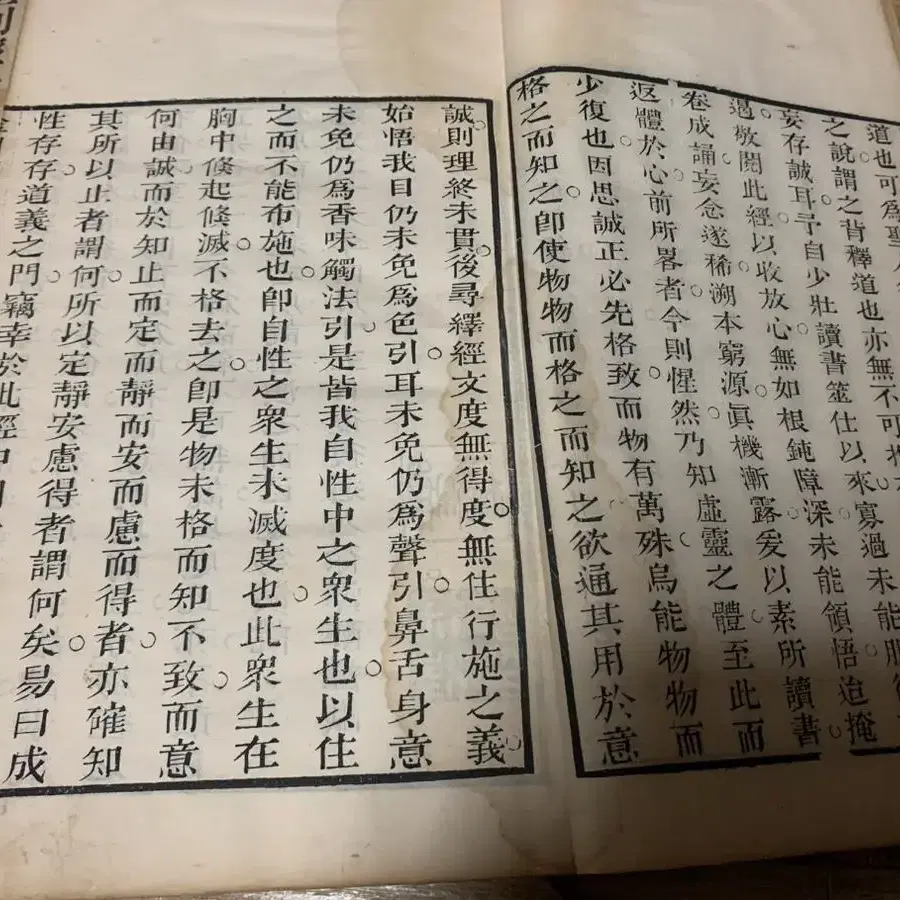 道也可為聖
之說謂之背釋道也亦無不可
妄存誠耳予自少壯讀書筮仕以來寡過未能
遏敬閱此經以收放心無如根鈍障深未能領悟迨掩
卷成誦妄念遂稀溯本窮源真機漸露爰以素所讀書
返體於心前所畧者今則惺然乃知虛靈之體至此而
少復也因思誠正必先格致而物有萬殊烏能物物而
格之而知之卽使物物而格之而知之欲通其用於意
誠則理終未貫後尋繹經文度無得度無住行施之義
始悟我目仍未免為色引耳未免仍為聲引鼻舌身意
未免仍為香味觸法引是皆我自性中之衆生也以住
之而不能布施也卽自性之衆生未滅度也此衆生在
胸中倐起倐滅不格去之卽是物未格而知不致而意
何由誠而於知止而定而靜而安而慮而得者亦確知
其所以止者謂何所以定靜安慮得者謂何矣易曰成
性存存道義之門竊幸於此經中